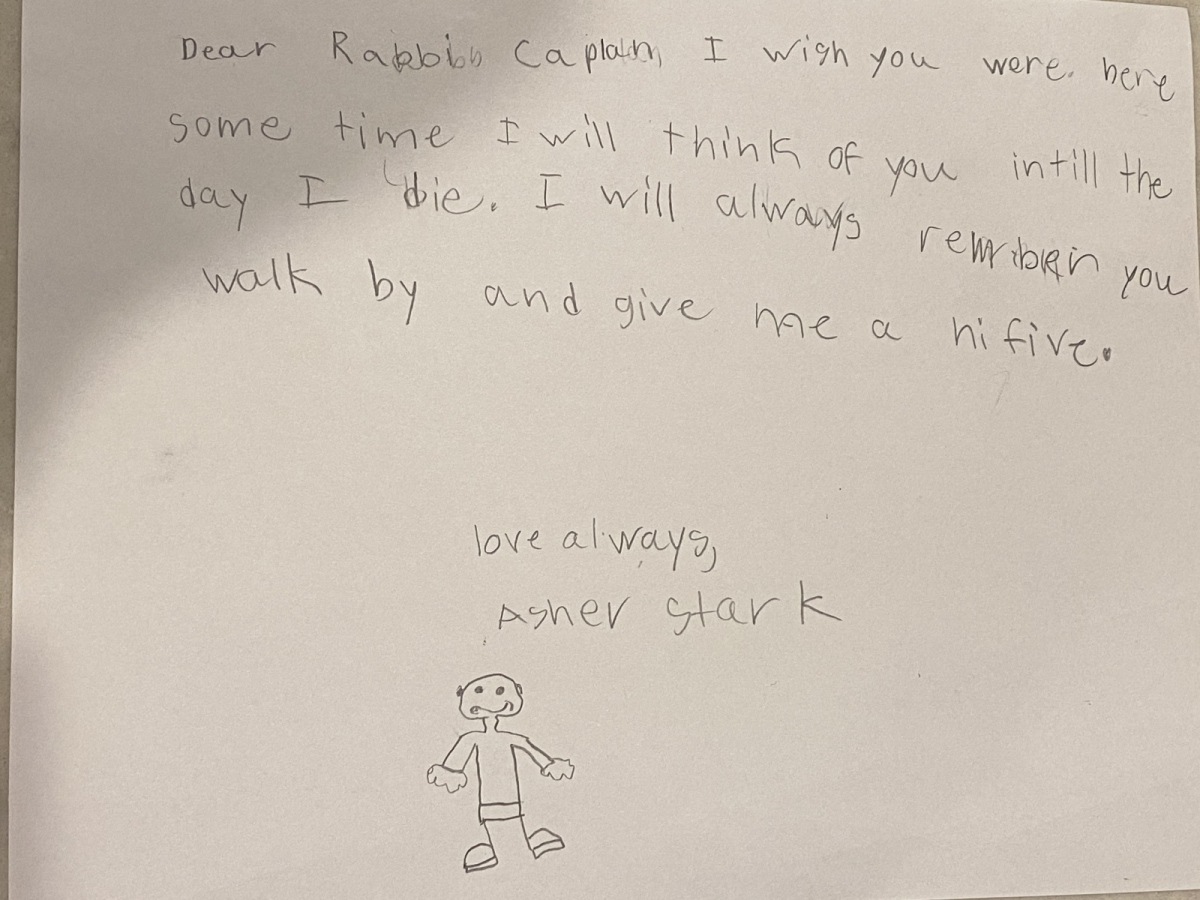 Dear Rabbi Caplan, I wish you were. here
some time I will think of you intill the
day I die. I will always you
walk by and give me a hi five.
love always,
Asher stark